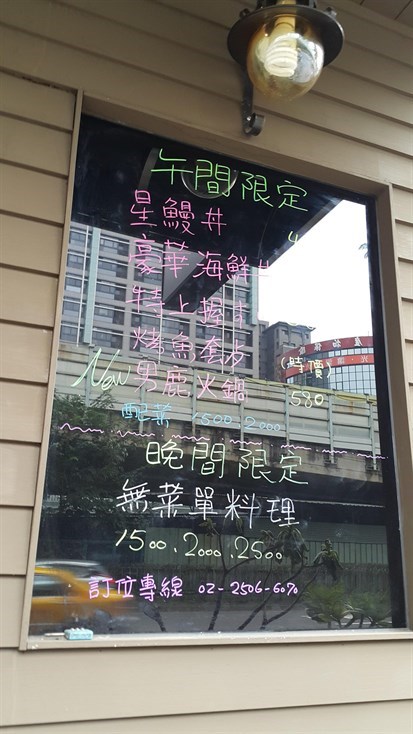 午間限定
星鰻丼
豪華海鮮丼
特上握
烤魚套
(時價)
New 男鹿火鍋 580
1500 2000
晚間限定
無菜單料理
1500.2000.2500
訂位專線 02-2506-6070